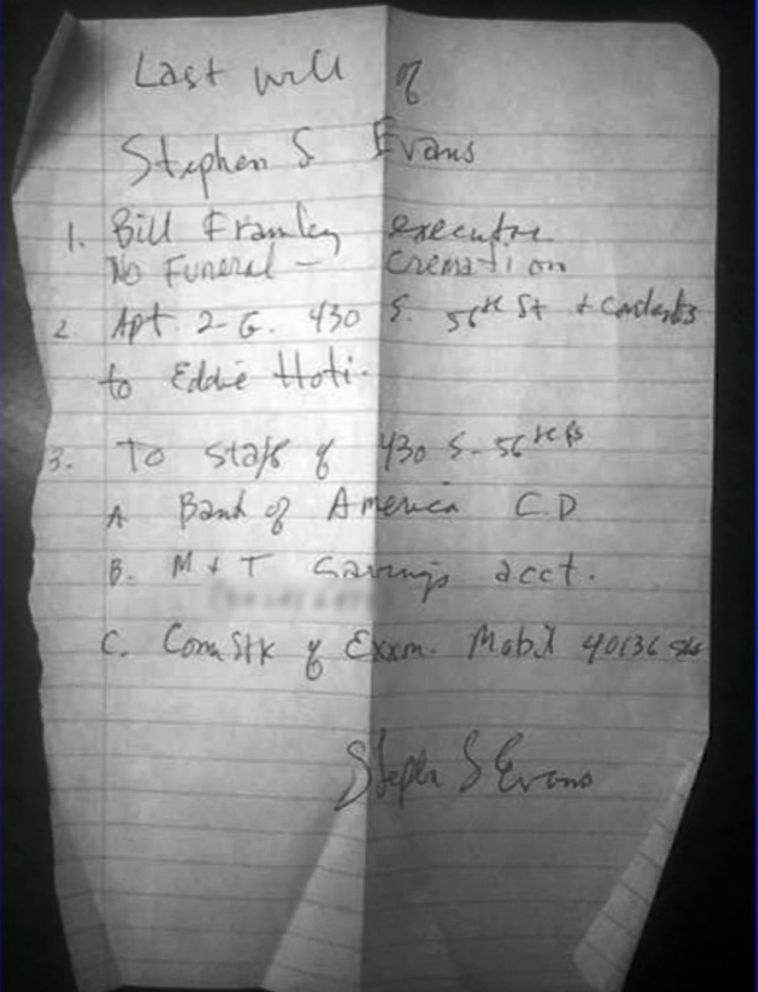 Last will of
Stephen S Evans
1. Bill Framley executor
No Funeral - Cremation
2. Apt. 2-G. 430 S. 56th St + Contents
to Eddie Hoti.
3. To staff of 430 S. 56th
A Bank of America C.D
B. M + T Savings acct.
C. Com Stk of Exxon. Mobil 40136 shs
Stephen S Evans